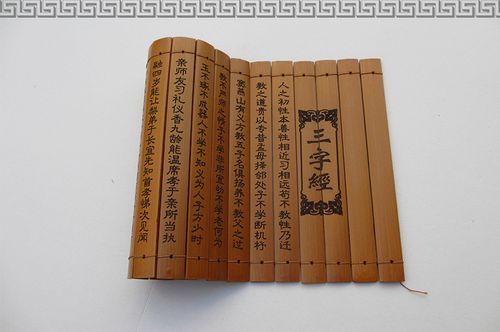 三字經
人之初性本善性相近习相远苟不教性乃迁
教之道贵以专昔孟母择邻处子不学断机杼
窦燕山有义方教五子名俱扬养不教父之过
教不严师之惰子不学非所宜幼不学老何为
玉不琢不成器人不学不知义为人子方少时
亲师友习礼仪香九龄能温席孝于亲所当执
融四岁能让梨弟于长宜先知首孝悌次见闻